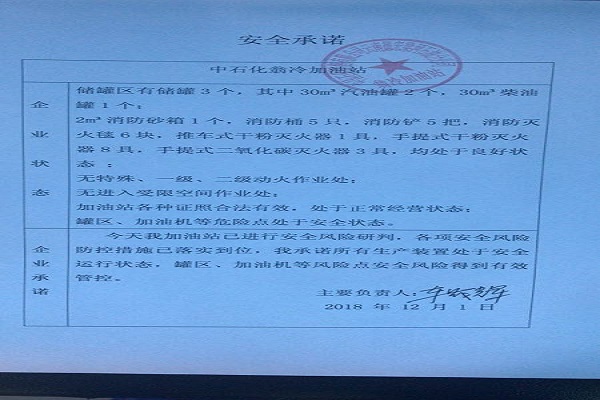 安全承诺
中石化翁冷加油站
企业状态
储罐区有储罐3个，其中30m³汽油罐2个，30m³柴油
罐1个；
2m³消防砂箱1个，消防桶5只，消防铲5把，消防灭
火毯6块，推车式干粉灭火器1具，手提式干粉灭火
器8具，手提式二氧化碳灭火器3具，均处于良好状
态；
无特殊、一级、二级动火作业处；
无进入受限空间作业处；
加油站各种证照合法有效，处于正常经营状态；
罐区、加油机等危险点处于安全状态。
企业承诺
今天我加油站已进行安全风险研判，各项安全风险
防控措施已落实到位，我承诺所有生产装置处于安全
运行状态，罐区、加油机等风险点安全风险得到有效
管控。
主要负责人：
2018 年 12 月 1 日